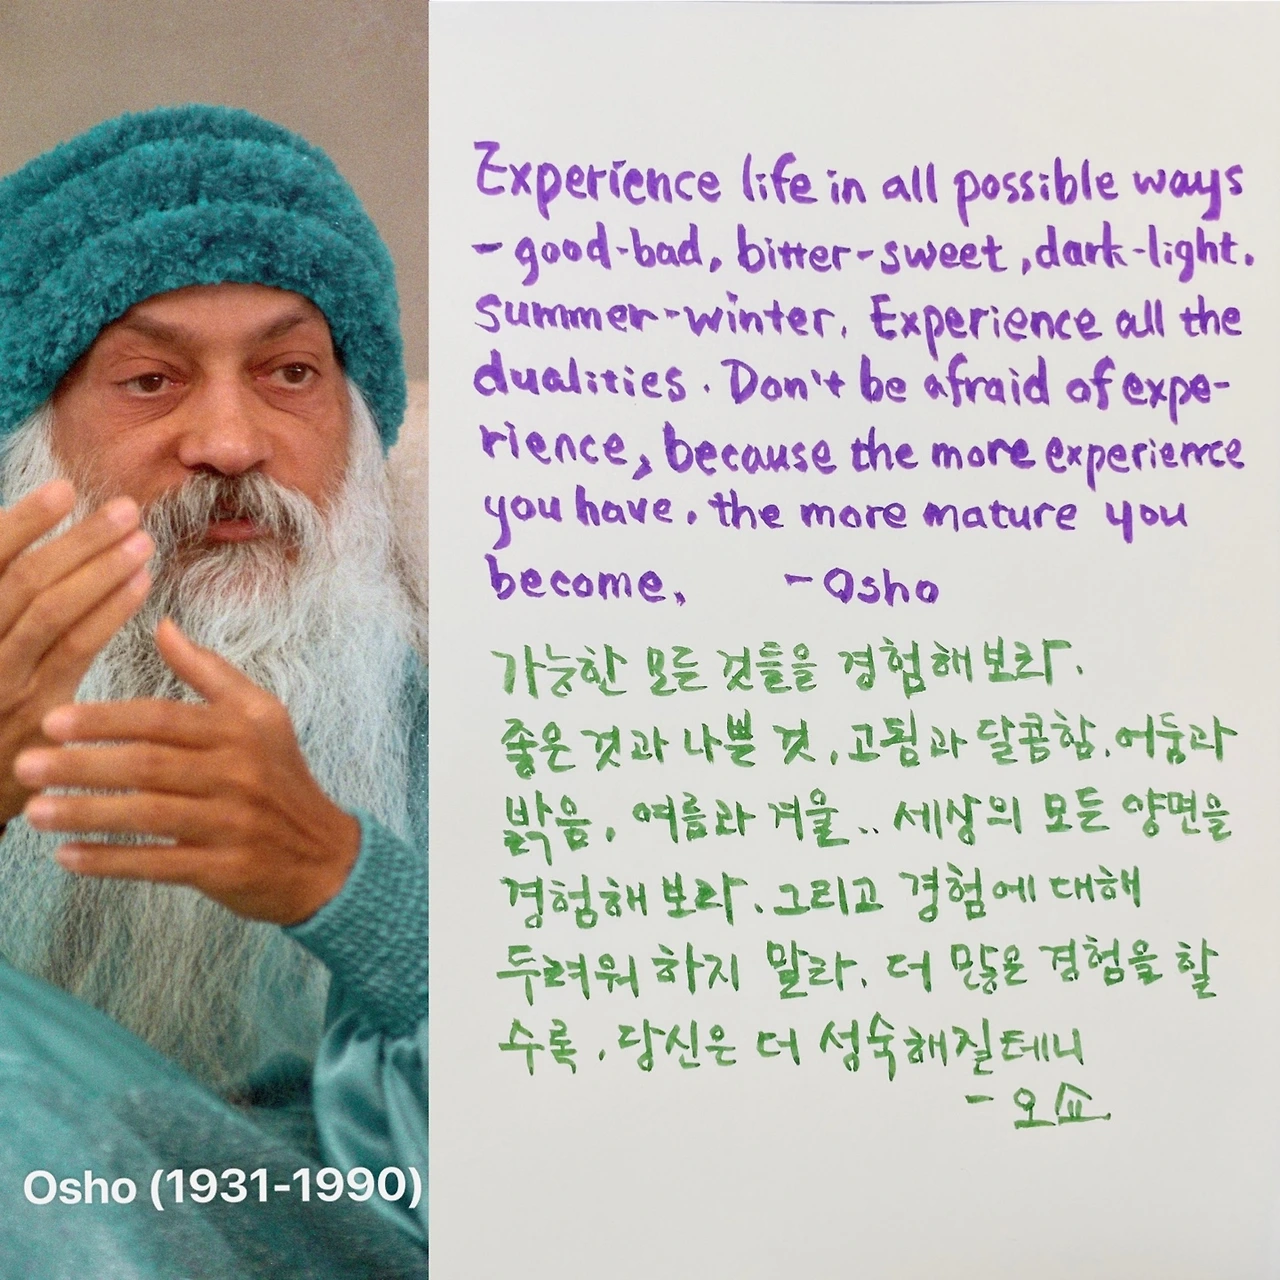 Experience life in all possible ways
- good-bad, bitter-sweet, dark-light.
summer-winter. Experience all the
dualities. Don't be afraid of expe-
rience, because the more experience
you have. the more mature you
become. - Osho
가능한 모든 것들을 경험해보라.
좋은 것과 나쁜 것, 고됨과 달콤함, 어둠과
밝음, 여름과 겨울.. 세상의 모든 양면을
경험해 보라. 그리고 경험에 대해
두려워 하지 말라. 더 많은 경험을 할
수록, 당신은 더 성숙해질테니
- 오쇼
Osho (1931-1990)